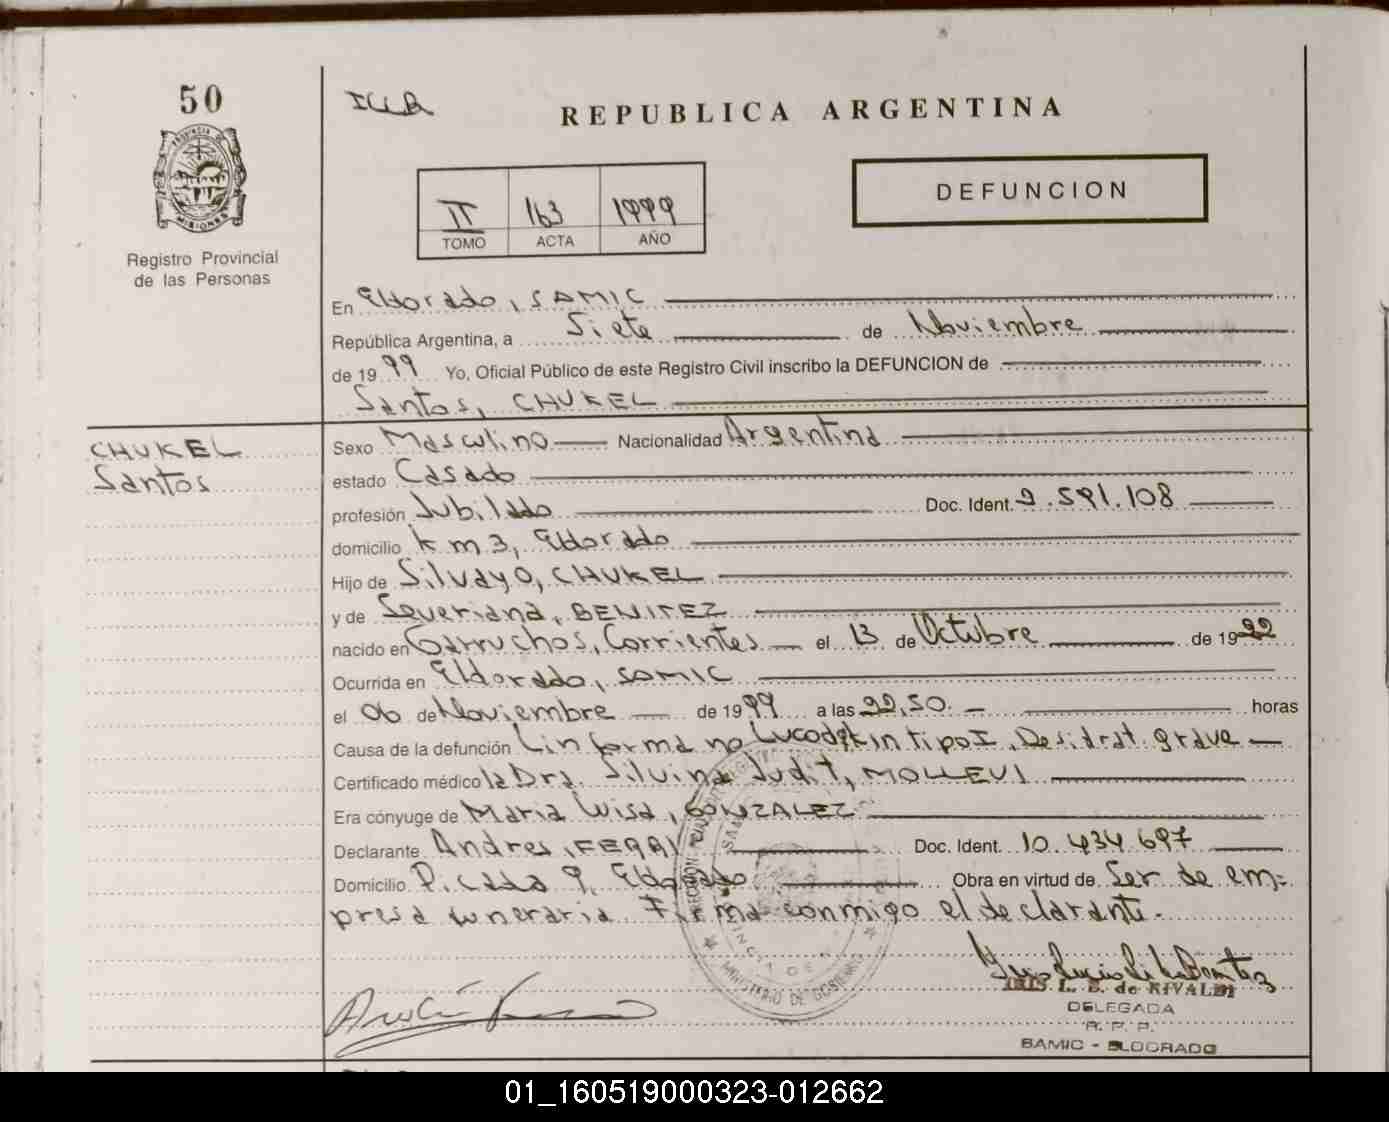 50
PROVINCIA DE
MISIONES
Registro Provincial
de las Personas
REPUBLICA ARGENTINA
DEFUNCION
II 163 1999
TOMO ACTA AÑO
En Eldorado, SAMIC
República Argentina, a Siete de Noviembre
de 1999 Yo, Oficial Público de este Registro Civil inscribo la DEFUNCION de
Santos, CHUKEL
CHUKEL
Santos
Sexo Masculino Nacionalidad Argentina
estado Casado
profesión Jubilado Doc. Ident. 2.591.108
domicilio km 3, Eldorado
Hijo de Silvayo, CHUKEL
y de Severiana, BENITEZ
nacido en Garruchos, Corrientes el 13 de Octubre de 1922
Ocurrida en Eldorado, SAMIC
el 06 de Noviembre de 1999 a las 22,50. horas
Causa de la defunción Linforma no tipo I, Desidrat. grave
Certificado médico la Dra. Silvina Judit, MOLLEVI
Era cónyuge de Maria Luisa, GONZALEZ
Declarante Andres, FERRI Doc. Ident. 10.434.697
Domicilio P. cada 9, Eldorado Obra en virtud de Ser de em=
presa funeraria Firma conmigo el declarante.
MINISTERIO DE GOBIERNO
L. B. de RIVALDI
DELEGADA
R. P. P.
SAMIC - ELDORADO
01_160519000323-012662